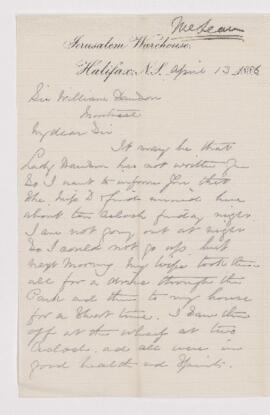 McLearn
Jerusalem Warehouse.
Halifax, N.S. April 13 1886
Sir William Dawson
Montreal
My dear Sir
It may be that
Lady Dawson has not written you
So I want to inform you that
She, Miss D & friends arrived here
about ten Oclock friday night.
I am not going out at night
So I could not go up but
next Morning My Wife took them
all for a drive through the
Park and then to my house
for a Short time. I Saw them
off at the Wharf at two
Oclock and all were in
good health and Spirits.